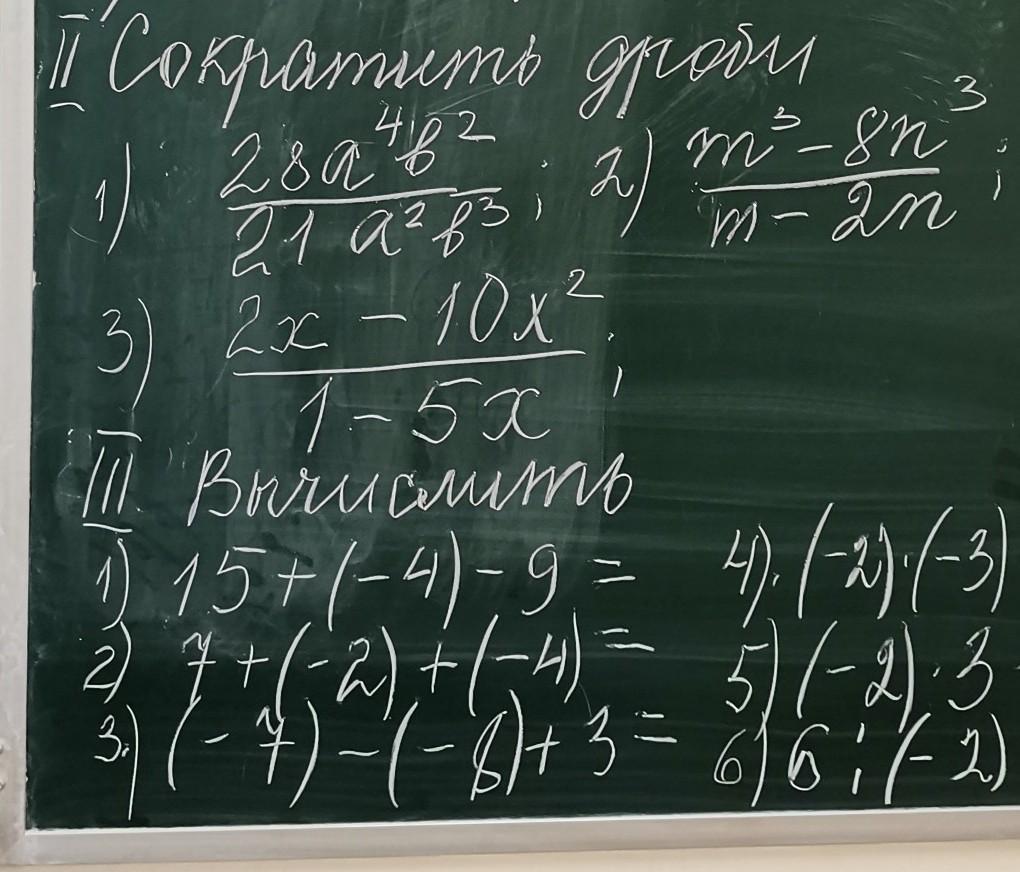 II Сократить дроби
1) 28a⁴b² / 21a²b³ ; 2) m³ - 8n³ / m - 2n ;
3) 2x - 10x² / 1 - 5x ;
III Вычислить
1) 15 + (-4) - 9 = 4). (-2)·(-3)
2) 7 + (-2) + (-4) = 5) (-2)·3
3.) (-7) - (-8) + 3 = 6) 6 : (-2)